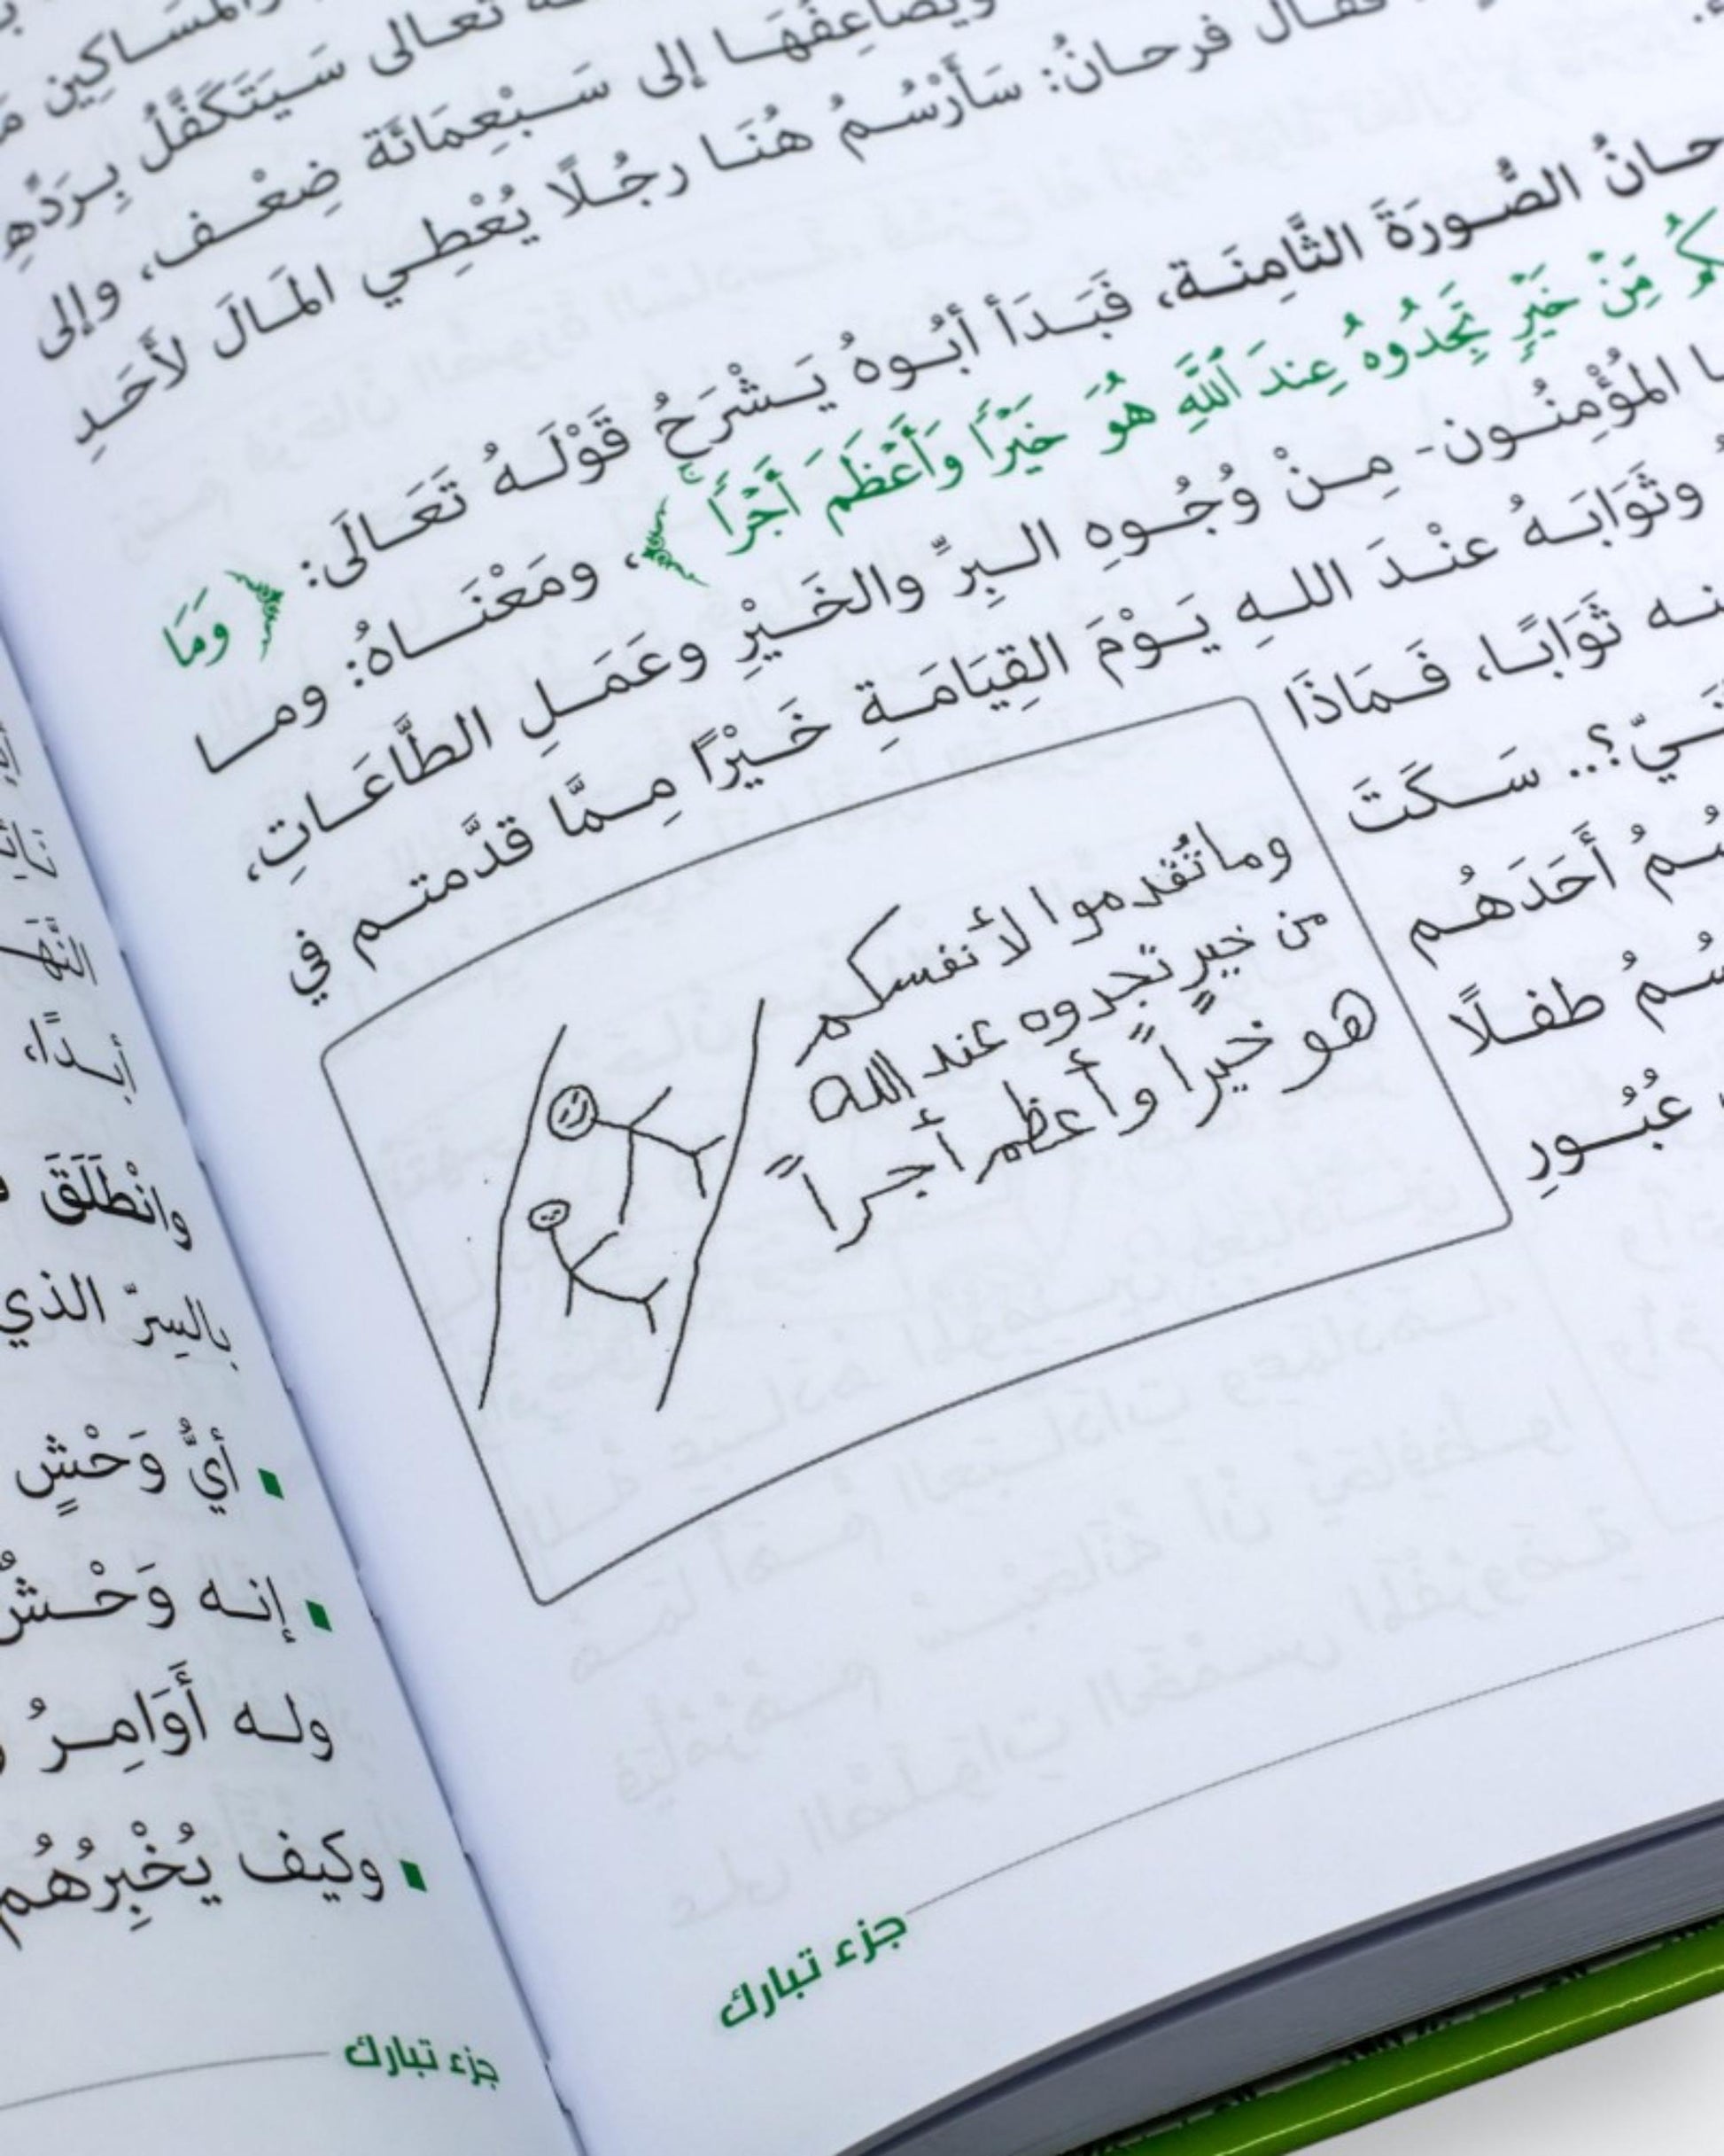 والمساكين
تعالى سَيَتَكَفَّلُ بِرَدِّهِ
ويُضَاعِفُهَا إلى سَبْعِمَائَة ضِعْف، وإلى
فقال فرحانُ: سَأَرْسُمُ هُنَا رجُلًا يُعْطِي المَالَ لأَحَدِ
الصُّورَةَ الثَّامِنَة، فَبَدَأ أبُوهُ يَشْرَحُ قَوْلَهُ تَعَالَى: ﴿ وَمَا
مِّنْ خَيْرٍ تَجِدُوهُ عِندَ ٱللَّهِ هُوَ خَيْرًا وَأَعْظَمَ أَجْرًا ﴾، ومَعْنَاهُ: وما
المُؤْمِنُون- مِنْ وُجُوهِ البِرِّ والخَيْرِ وعَمَلِ الطَّاعَاتِ،
وثَوَابَهُ عنْدَ اللهِ يَوْمَ القِيَامَةِ خَيْرًا مِمَّا قدَّمتم في
ثَوَابًا، فَمَاذَا
سَكَتَ
أَحَدَهُم
طفلًا
عُبُورِ
وما تُقدموا لأنفسكم
من خيرٍ تجدوه عند الله
هو خيراً وأعظم أجراً
جزء تبارك
أبدًا،
وانْطَلَقَ
بِالسِرّ الذي
أيُّ وَحْشٍ
إنه وَحْشٌ
وله أَوَامِرُ
وكيف يُخْبِرُهُم
جزء تبارك